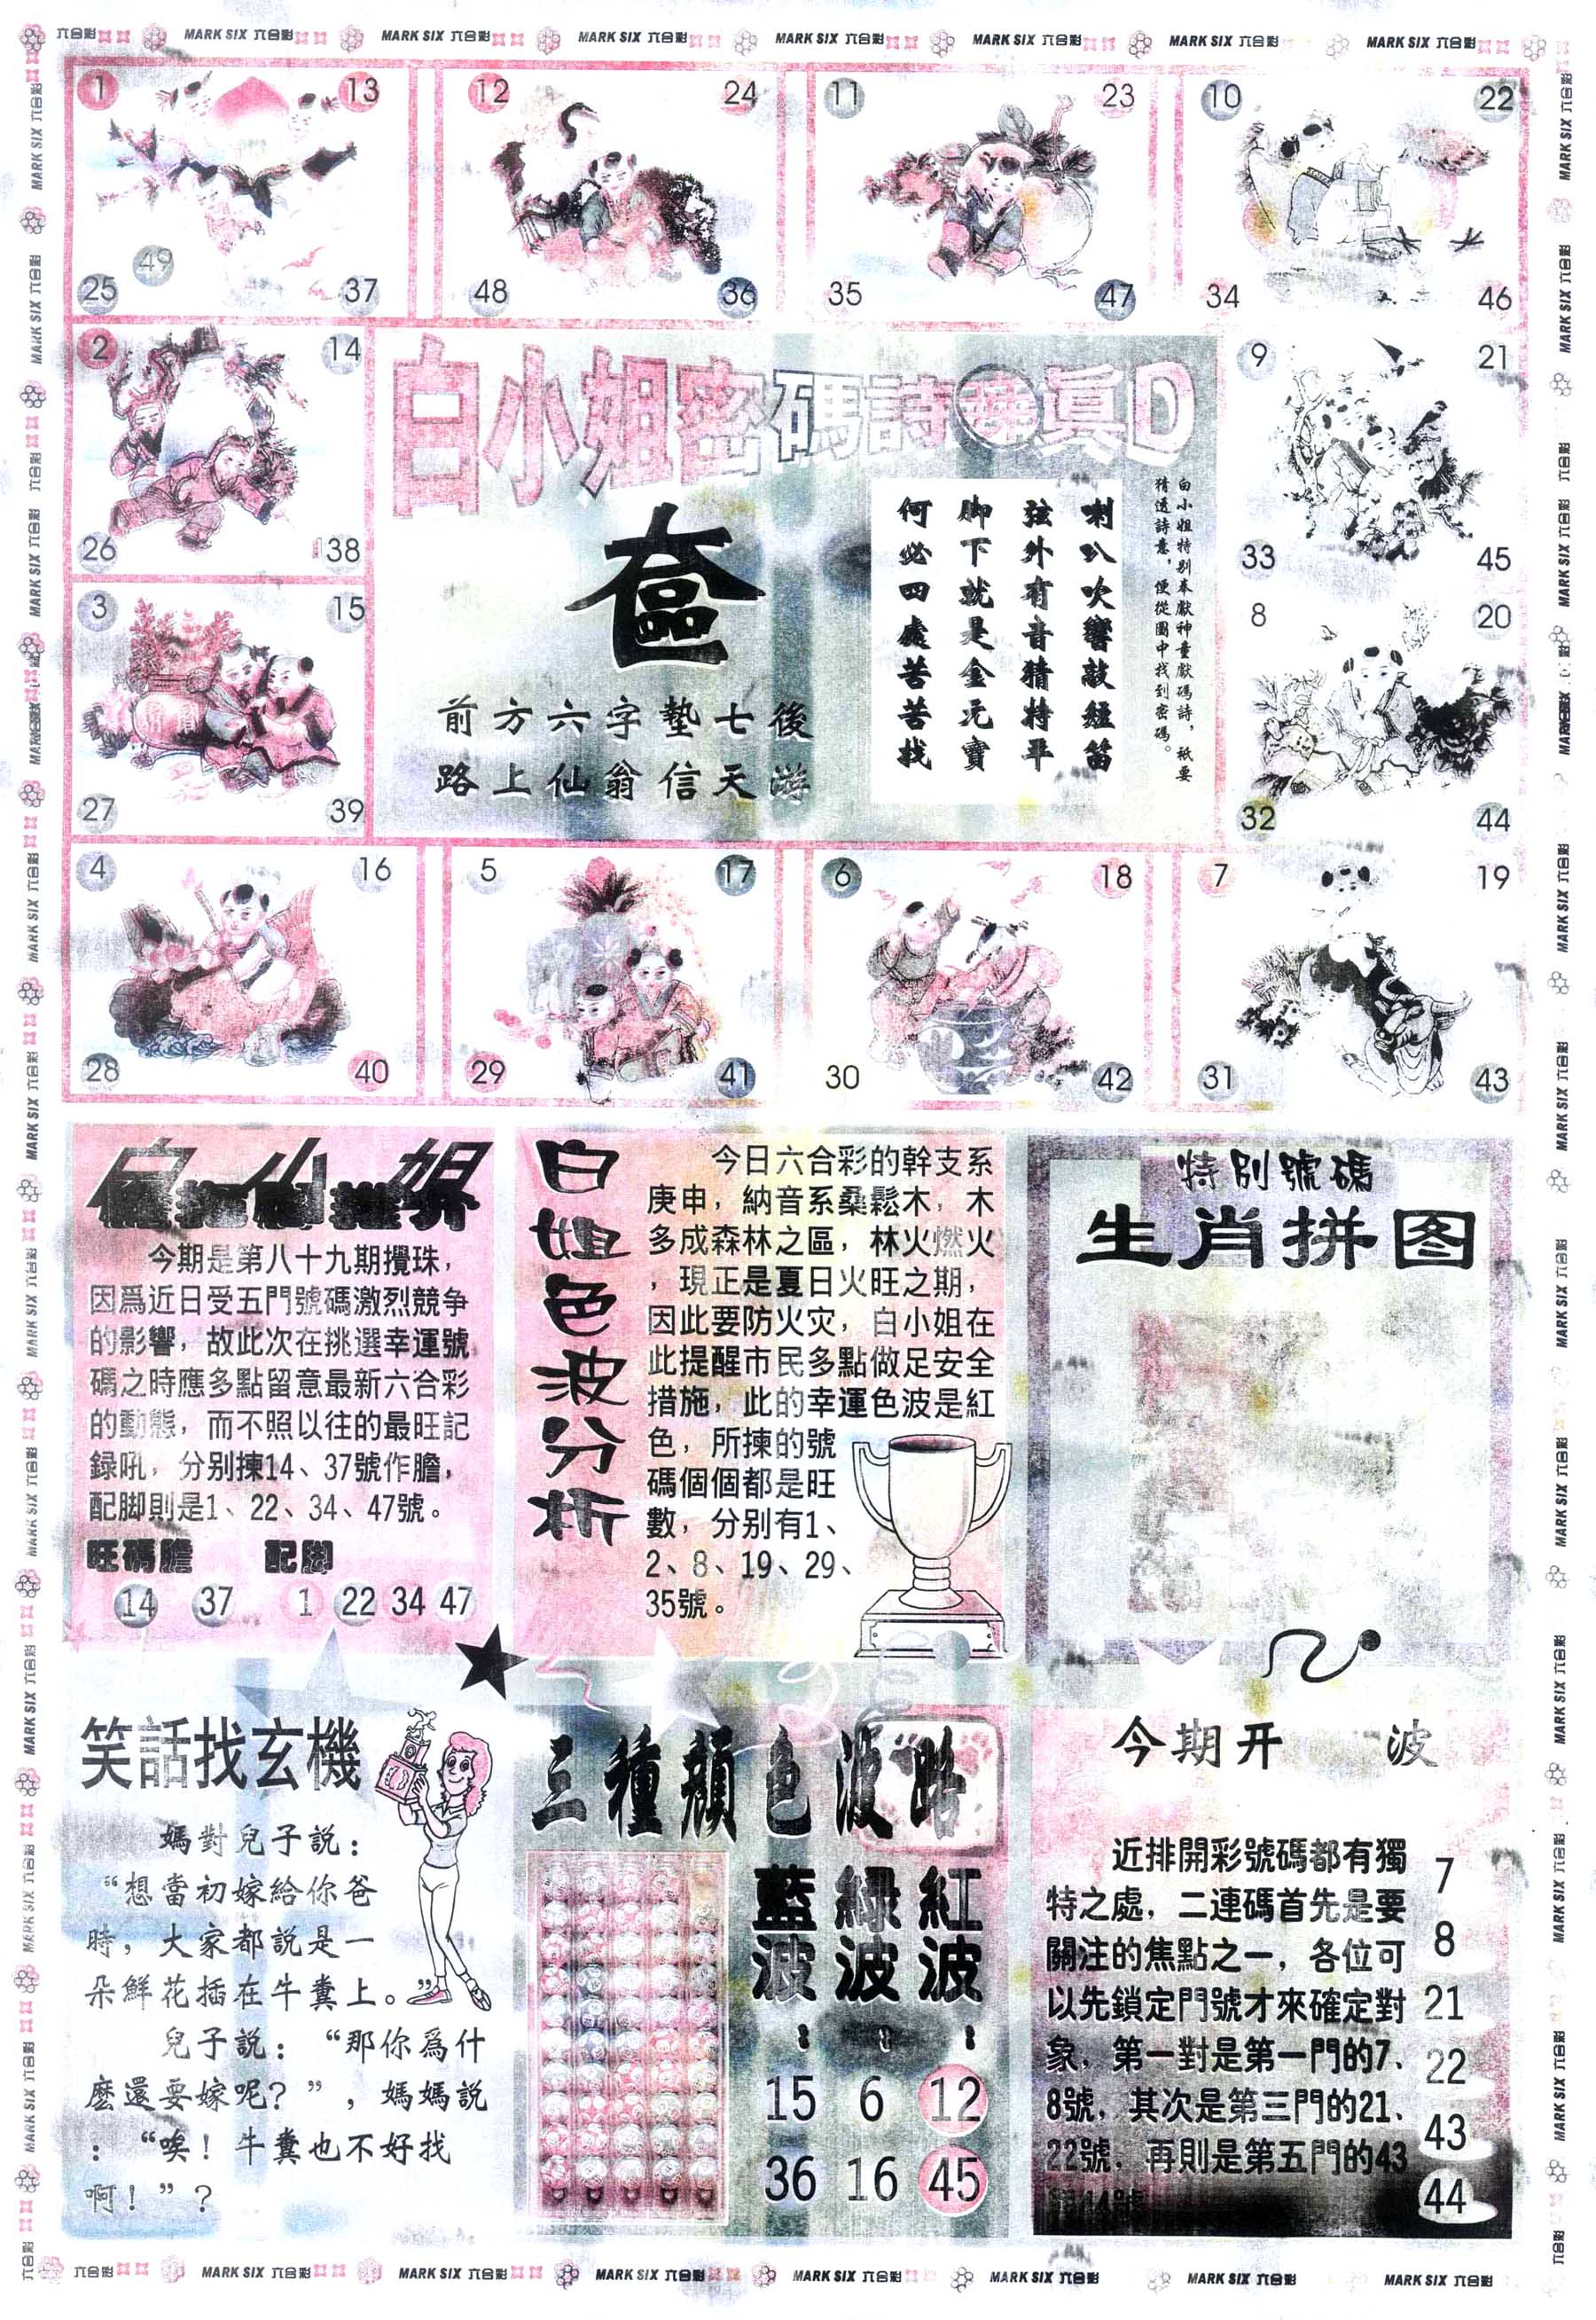 MARK SIX 六合彩
1 13
49
25 37
12 24
48 36
11 23
35 47
10 22
34 46
2 14
26 38
3 15
27 39
9 21
33 45
8 20
32 44
白小姐密碼詩
真D
前方六字墊七後
路上仙翁信天游
白小姐特别奉獻神童獻碼詩，祇要
猜透詩意，便從圖中找到密碼。
喇叭吹響敲短笛
弦外有音猜特平
脚下就是金元寶
何必四處苦苦找
4 16
28 40
5 17
29 41
6 18
30 42
7 19
31 43
白小姐
今期是第八十九期攪珠，
因爲近日受五門號碼激烈競争
的影響，故此次在挑選幸運號
碼之時應多點留意最新六合彩
的動態，而不照以往的最旺記
録吼，分别揀14、37號作膽，
配脚則是1、22、34、47號。
旺碼膽 配脚
14 37 1 22 34 47
白姐色波分析
今日六合彩的幹支系
庚申，納音系桑鬆木，木
多成森林之區，林火燃火
，現正是夏日火旺之期，
因此要防火灾，白小姐在
此提醒市民多點做足安全
措施，此的幸運色波是紅
色，所揀的號
碼個個都是旺
數，分别有1、
2、8、19、29、
35號。
特别號碼
生肖拼图
笑話找玄機
媽對兒子説：
“想當初嫁給你爸
時，大家都説是一
朵鮮花插在牛糞上。”
兒子説：“那你爲什
麽還要嫁呢？”，媽媽説
：“唉！牛糞也不好找
啊！”？
三種顔色波略
藍波： 緑波： 紅波：
15 6 12
36 16 45
今期开 波
近排開彩號碼都有獨
特之處，二連碼首先是要
關注的焦點之一，各位可
以先鎖定門號才來確定對
象，第一對是第一門的7、
8號，其次是第三門的21、
22號，再則是第五門的43
7
8
21
22
43
44